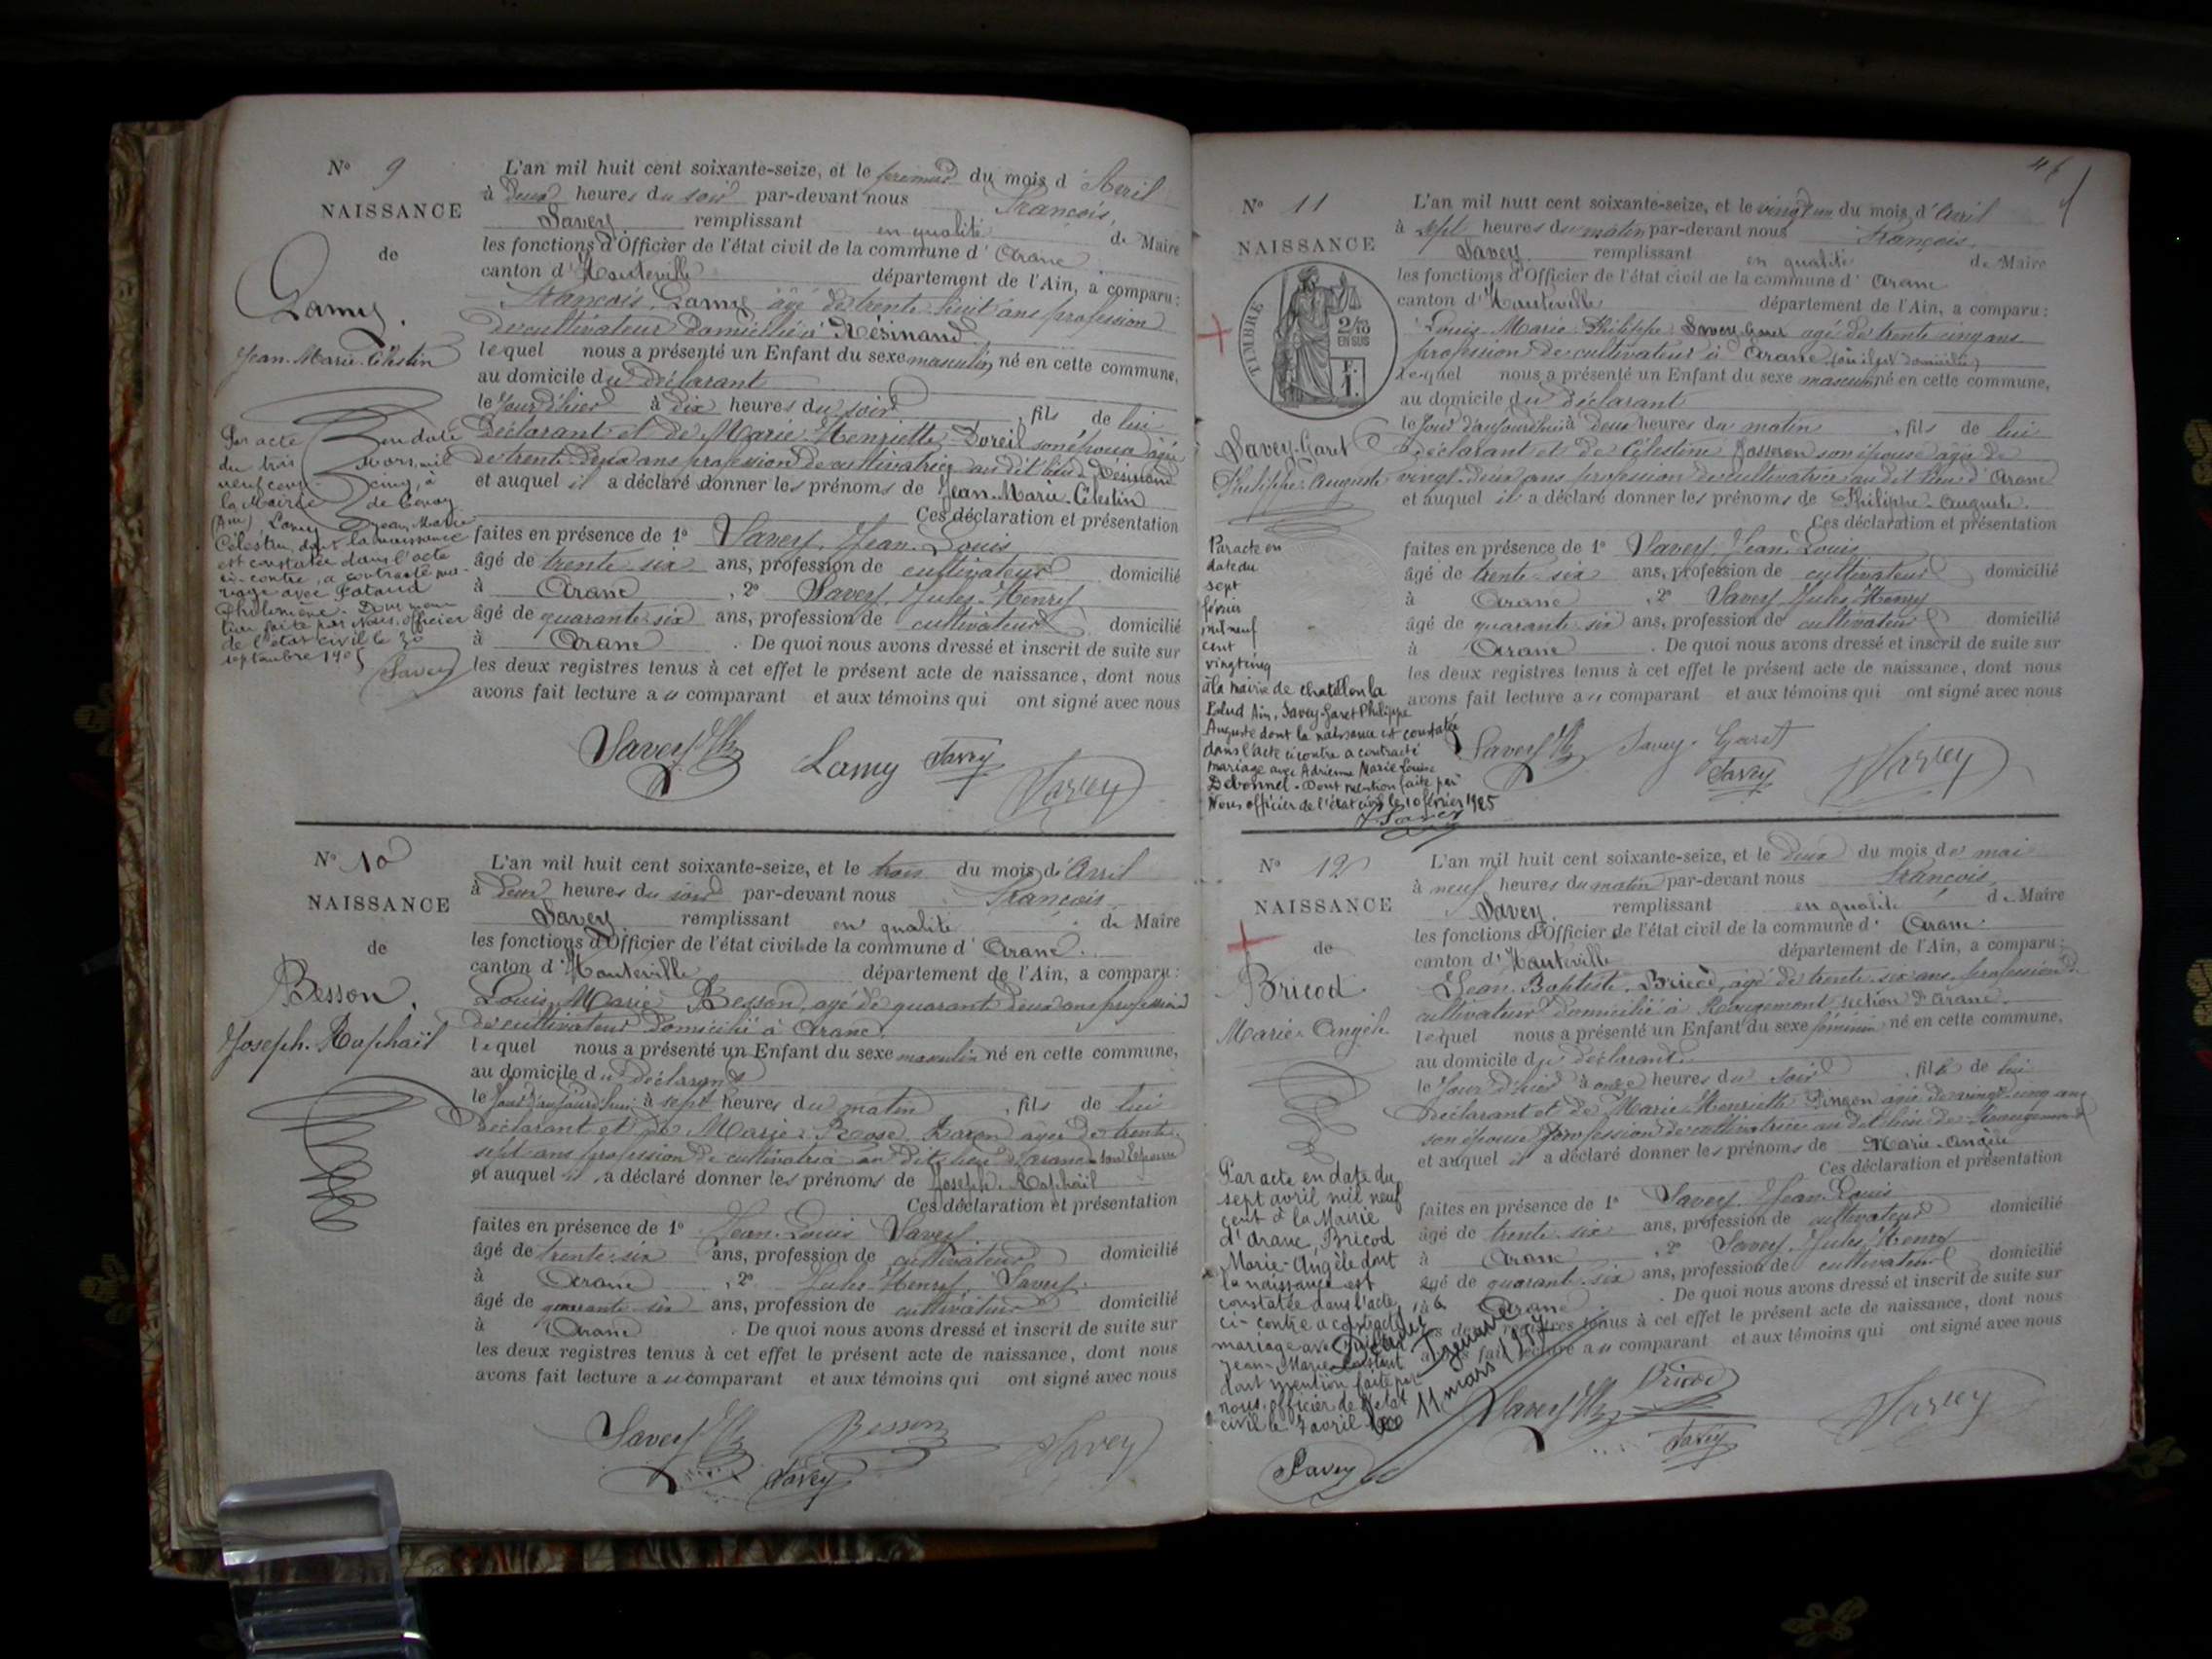 N° 9
NAISSANCE
de
Lamy.
Jean-Marie-Célestin
Par acte en date
du trois mars mil
neuf cent cinq, à
la Mairie de
(Ain), Lamy Jean Marie
Célestin, dont la naissance
est constatée dans l'acte
ci-contre, a contracté ma-
riage avec
Dont men-
tion faite par Nous, officier
de l'état civil le 30
septembre 1905
Savey
L'an mil huit cent soixante-seize, et le premier du mois d'Avril
à deux heures du soir par-devant nous François,
Savey. remplissant en qualité de Maire
les fonctions d'Officier de l'état civil de la commune d'Aranc
canton d'Hauteville département de l'Ain, a comparu:
François Lamy âgé de trente huit ans profession
de cultivateur domicilié à Résinand
lequel nous a présenté un Enfant du sexe masculin, né en cette commune,
au domicile du déclarant
le jour d'hier à dix heures du soir, fils de lui
déclarant et de Marie Henriette son épouse âgée
de trente deux ans profession de cultivatrice au dit lieu de Résinand
et auquel il a déclaré donner les prénoms de Jean-Marie-Célestin
Ces déclaration et présentation
faites en présence de 1° Savey, Jean-Louis
âgé de trente-six ans, profession de cultivateur domicilié
à Aranc, 2° Savey, Jules-Henry
âgé de quarante-six ans, profession de cultivateur domicilié
à Aranc. De quoi nous avons dressé et inscrit de suite sur
les deux registres tenus à cet effet le présent acte de naissance, dont nous
avons fait lecture au comparant et aux témoins qui ont signé avec nous
Savey Lamy Savey
Savey
N° 10
NAISSANCE
de
Besson.
Joseph-Raphaïl
L'an mil huit cent soixante-seize, et le trois du mois d'Avril
à deux heures du soir par-devant nous François,
Savey. remplissant en qualité de Maire
les fonctions d'Officier de l'état civil de la commune d'Aranc.
canton d'Hauteville département de l'Ain, a comparu:
Louis-Marie Besson, âgé de quarant deux ans profession
de cultivateur domicilié à Aranc.
lequel nous a présenté un Enfant du sexe masculin né en cette commune,
au domicile du déclarant
le jour d'aujourd'hui à sept heures du matin, fils de lui
déclarant et de Marie-Rose âgée de trente
sept ans profession de cultivatrice au dit lieu d'Aranc son épouse
et auquel il a déclaré donner les prénoms de Joseph-Raphaïl
Ces déclaration et présentation
faites en présence de 1° Jean-Louis Savey.
âgé de trente-six ans, profession de cultivateur domicilié
à Aranc, 2° Jules-Henry Savey.
âgé de quarante-six ans, profession de cultivateur domicilié
à Aranc. De quoi nous avons dressé et inscrit de suite sur
les deux registres tenus à cet effet le présent acte de naissance, dont nous
avons fait lecture au comparant et aux témoins qui ont signé avec nous
Savey Besson Savey
Savey
N° 11
NAISSANCE
TIMBRE
2/10
EN SUS
F.
1.
Savey-Garet
Philippe-Auguste
Par acte en
date du
sept
février
mil neuf
cent
vingt cinq
à la mairie de Chatillon la
Palud Ain, Savey-Garet Philippe
Auguste dont la naissance est constatée
dans l'acte ci contre a contracté
mariage avec Adrienne Marie Louise
Debonnel. Dont mention faite par
Nous officier de l'état civil le 10 février 1925
Savey
L'an mil huit cent soixante-seize, et le vingt un du mois d'Avril
à sept heures du matin par-devant nous François,
Savey. remplissant en qualité de Maire
les fonctions d'Officier de l'état civil de la commune d'Aranc
canton d'Hauteville département de l'Ain, a comparu:
Louis Marie Philippe Savey-Garet âgé de trente cinq ans
profession de cultivateur à Aranc (où il est domicilié)
lequel nous a présenté un Enfant du sexe masculin né en cette commune,
au domicile du déclarant
le jour d'aujourd'hui à deux heures du matin, fils de lui
déclarant et de Célestine Josseron son épouse âgée de
vingt-deux ans profession de cultivatrice au dit lieu d'Aranc
et auquel il a déclaré donner les prénoms de Philippe-Auguste.
Ces déclaration et présentation
faites en présence de 1° Savey, Jean-Louis
âgé de trente-six ans, profession de cultivateur domicilié
à Aranc, 2° Savey, Jules-Henry
âgé de quarante six ans, profession de cultivateur domicilié
à Aranc. De quoi nous avons dressé et inscrit de suite sur
les deux registres tenus à cet effet le présent acte de naissance, dont nous
avons fait lecture au comparant et aux témoins qui ont signé avec nous
Savey Savey-Garet
Savey Savey
N° 12
NAISSANCE
de
Bricod
Marie-Angèle
Par acte en date du
sept avril mil neuf
cent à la Mairie
d'Aranc, Bricod
Marie-Angèle dont
la naissance est
constatée dans l'acte
ci-contre a contracté
mariage avec
Jean-Marie
dont mention faite par
nous, officier de l'état
civil le 7 avril 1900
Savey
11 mars
L'an mil huit cent soixante-seize, et le deux du mois de mai
à neuf heures du matin par-devant nous François,
Savey. remplissant en qualité de Maire
les fonctions d'Officier de l'état civil de la commune d'Aranc.
canton d'Hauteville département de l'Ain, a comparu:
Jean-Baptiste Bricod, âgé de trente-six ans, profession de
cultivateur domicilié à Rougemont section d'Aranc.
lequel nous a présenté un Enfant du sexe féminin né en cette commune,
au domicile du déclarant
le jour d'hier à onze heures du soir, fille de lui
déclarant et de Marie Henriette Pingon âgée de vingt-cinq ans
son épouse profession de cultivatrice au dit lieu de Rougemont
et auquel il a déclaré donner les prénoms de Marie-Angèle
Ces déclaration et présentation
faites en présence de 1° Savey, Jean-Louis
âgé de trente-six ans, profession de cultivateur domicilié
à Aranc, 2° Savey, Jules-Henry
âgé de quarant-six ans, profession de cultivateur domicilié
à Aranc. De quoi nous avons dressé et inscrit de suite sur
les deux registres tenus à cet effet le présent acte de naissance, dont nous
avons fait lecture au comparant et aux témoins qui ont signé avec nous
Savey Bricod
Savey Savey